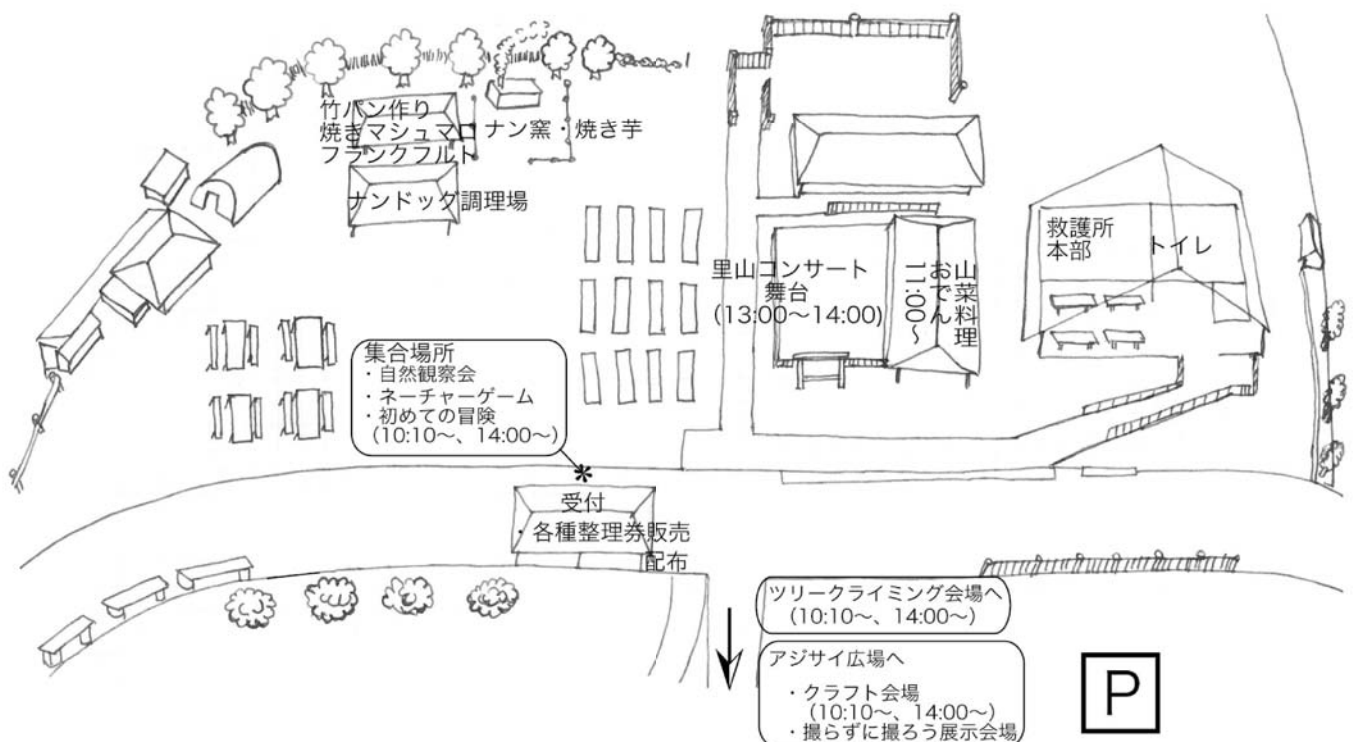 竹パン作り
焼きマシュマロ
フランクフルト
ナン窯・焼き芋
ナンドッグ調理場
里山コンサート
舞台
(13:00〜14:00)
山菜料理
おでん
11:00〜
救護所
本部
トイレ
集合場所
・自然観察会
・ネーチャーゲーム
・初めての冒険
(10:10〜、14:00〜)
*
受付
・各種整理券販売
配布
ツリークライミング会場へ
(10:10〜、14:00〜)
アジサイ広場へ
・クラフト会場
(10:10〜、14:00〜)
・撮らずに撮ろう展示会場
P